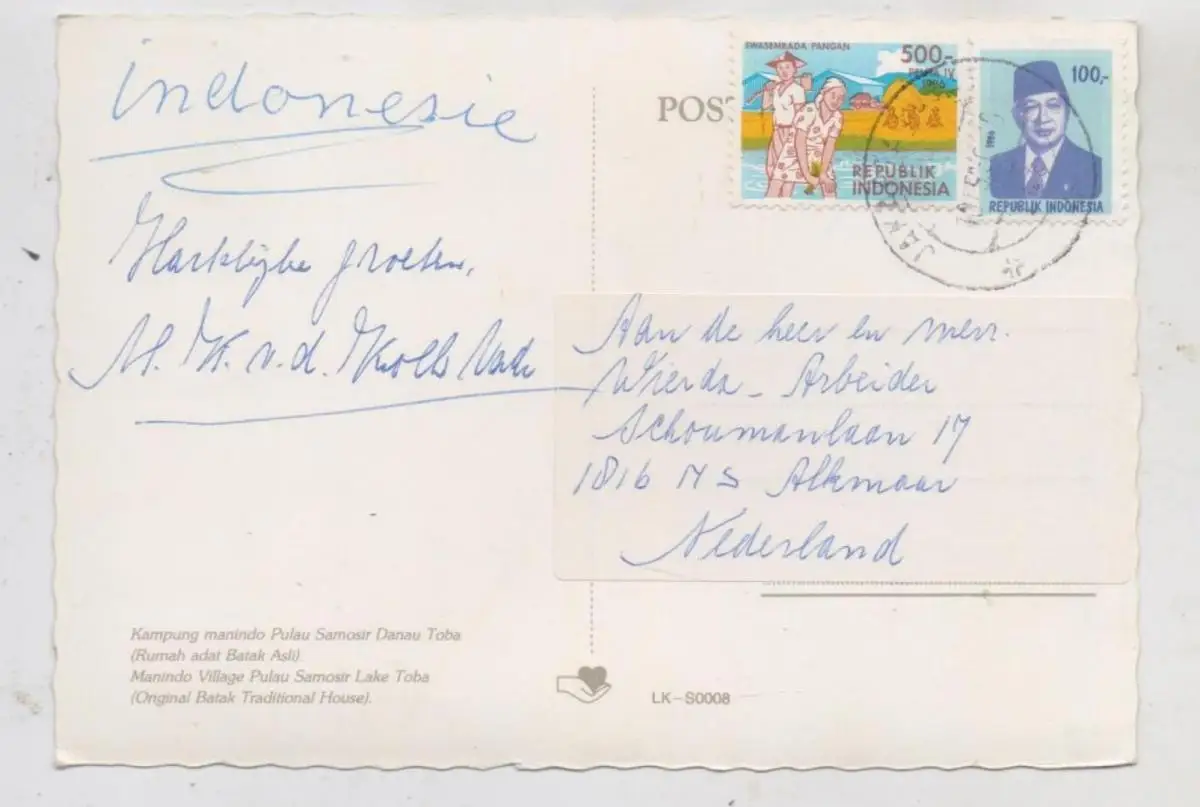 indonesie
Hartelijke groeten,
M. K. v.d.
POST
SWASEMBADA PANGAN
500,-
PELITA IV
1986
REPUBLIK
INDONESIA
100,-
1986
REPUBLIK INDONESIA
JAK
Aan de heer en mevr.
Wierda - Arbeider
Schoumanlaan 17
1816 MS Alkmaar
Nederland
Kampung manindo Pulau Samosir Danau Toba
(Rumah adat Batak Asli)
Manindo Village Pulau Samosir Lake Toba
(Original Batak Traditional House).
LK-S0008